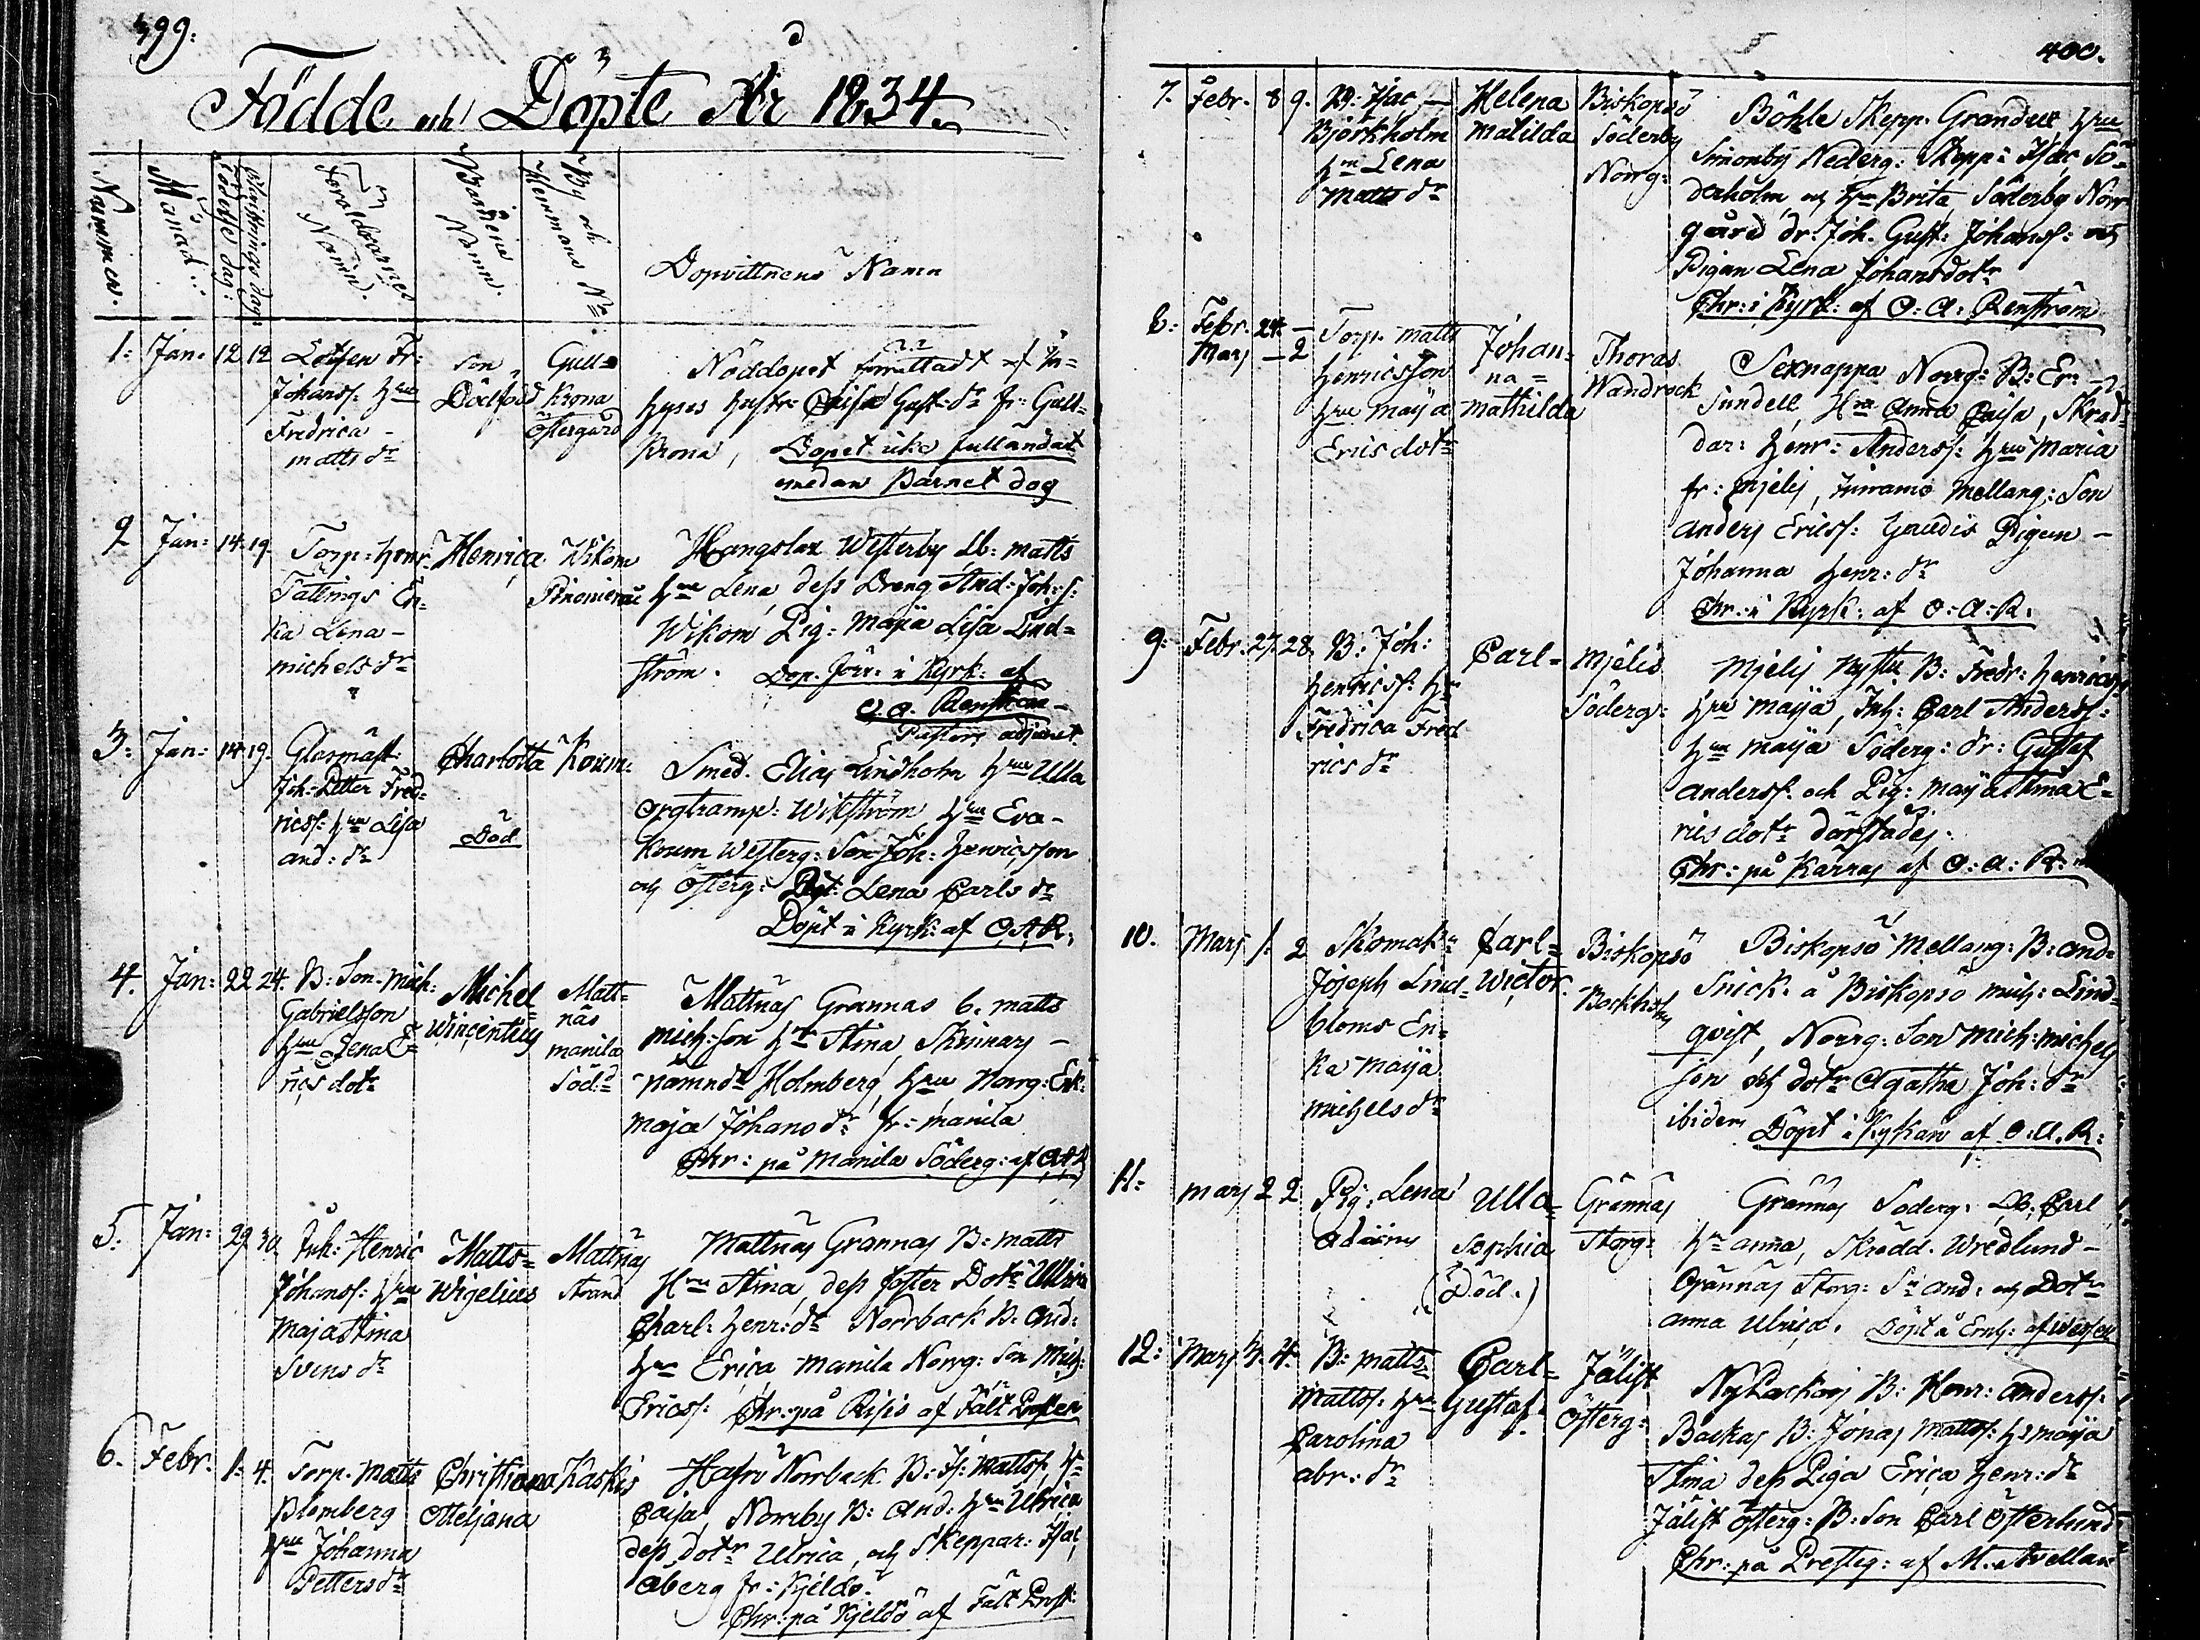 399.
Födde och Döpte År 1834.
Nummer.
Månad
Födelse dag:
Christnings dag:
Föräldrarnes Namn.
Barnens Namn.
By och Hemmans No.
Dopvittnens Namn
1: Jan: 12. 12
Lotsen Fr:
Johanss. Hru
Fredrica
Matts dr
Son
Dödfödd
Gull-
krona
Östergård
Nöddopet förrättadt af In-
hyses hustr. Caisa Gust. dr fr: Gull-
krona, Dopet icke fulländat
emedan Barnet dog
2 Jan: 14. 19.
Torp: Henr.
Tallings En-
ka Lena
Michels dr
Henrica
Wikom
Hangslax Westerby Lb: Matts
hru Lena, dess Dreng And: Joh: s:
Wikom Pig: Maja Lisa Lind-
ström. Dop. förr. i Kyrk: af
O. A. Renström
Pastors adjunct.
3: Jan: 14. 19.
Glasmäst.
Joh: Petter Fred-
ricss: hru Lisa
And: dr
Charlotta
Död
Korum:
Smed. Elias Lindholm hru Ulla
Orgtramp: Wikström, hru Eva
Korum Westerg: Son Joh: Henricsson
och Österg: Dot: Lena Carls dr
Döpt i Kyrk: af O.A.R.
4. Jan: 22 24.
B: Son Mich:
Gabrielsson
hru Lena E-
rics dotr
Michel
Wincentius
Matt-
näs
Manila
Söd:
Mattnäs Grannas B. Matts
Mich: son hr Stina, Skinnars
Holmberg, hru Norrg: Enk:
Maja Johans dr fr: Manila
Chr: på Manila Söderg: af OAR
5. Jan: 29. 30
Inh: Henric
Johanss: hru
Maja Stina
Svens dr
Matts
Wigelius
Mattnäs
Strand
Mattnäs Grannas B: Matts
Hru Stina, dess foster Dotr Ulrica
Charl: Henr: dr Norrback B. And:
hr Erica Manila Norrg: Son Mich:
Ericss: Chr: på Risis af Fält Prosten
6. Febr. 1. 4.
Torp. Matts
Blomberg
hru Johanna
Petters dr
Christiana
Otteliana
Kaskis
Norrback. B: Is: Mattss. hr
Caisa, Norrby B: And: hru Ulrica
dess dotr Ulrica, och Skeppar: Isac
Åberg fr: Kjeldö.
Chr: på Kjeldö af Fält Prost:
400.
7. Febr. 8 9.
B: Isac
Björkholm
hru Lena
Matts dr
Helena
Matilda
Biskopsö
Söderby
Norrg:
Böhle Skepp. Grandell, hru
Simonby Nederg: Skepp: Isac Sö-
derholm och hru Brita, Söderby Norr-
gård dr: Joh. Gust: Johanss: och
Pigan Lena Johans dotr
Chr: i Kyrk: af O. A: Renström
8: Febr. 24 –
Mars – 2
Torp. Matts
Henricsson
hru Maija
Erics dotr
Johan-
na
Mathilda
Thoras
Wandrock
Sexnappa Norrg: B: Er:
Sundell, Hru Anna Caisa, Skräd-
dar: Henr: Anderss: hru Maria
fr: Mjelis, Mellang: Son
Anders Ericss: Pigan
Johanna Henr: dr
Chr: i Kyrk: af O. A. R.
9: Febr. 27. 28.
B: Joh:
Henricss: hru
Fredrica Fred
rics dr
Carl
Mjelis
Söderg:
Mjelis B: Fredr: Henricss
hru Maija, Inh: Carl Anderss:
hru Maija Söderg: dr: Gustaf
Anderss. och Pig: Maija Stina E-
rics dotr därstädes.
Chr: på Kärras af O. A. R.
10. Mars 1. 2
Skomak:
Joseph Lind-
bloms En-
ka Maija
Michels dr
Carl
Wictor.
Biskopsö
Bockholm
Biskopsö Mellang: B: And:
Snick: å Biskopsö Mich: Lind-
qvist, Norrg: Son Mich: Michels
son och dotr Agatha Joh: dr
ibidem Döpt i Kyrkan af O. A. R:
11: Mars 2 2
Pig. Lena
Ulla
Sophia
(Död.)
Grännäs
Storg:
Grännäs Söderg. Lb: Carl
hr Anna, Skrädd. Wredlund
Grännäs Storg: Sn And: och Dotr
Anna Ulrica.
12: Mars 4. 4.
B: Matts
Mattss. hru
Carolina
Abr: dr
Carl
Gustaf
Jälist
Österg:
B: Henr: Anderss.
Backas B: Jonas Mattss: hr Maija
Stina dess Piga Erica Henr: dr
Jälist Österg: B: Son Carl Österlund
Chr: på Presteg: af M. Avellan